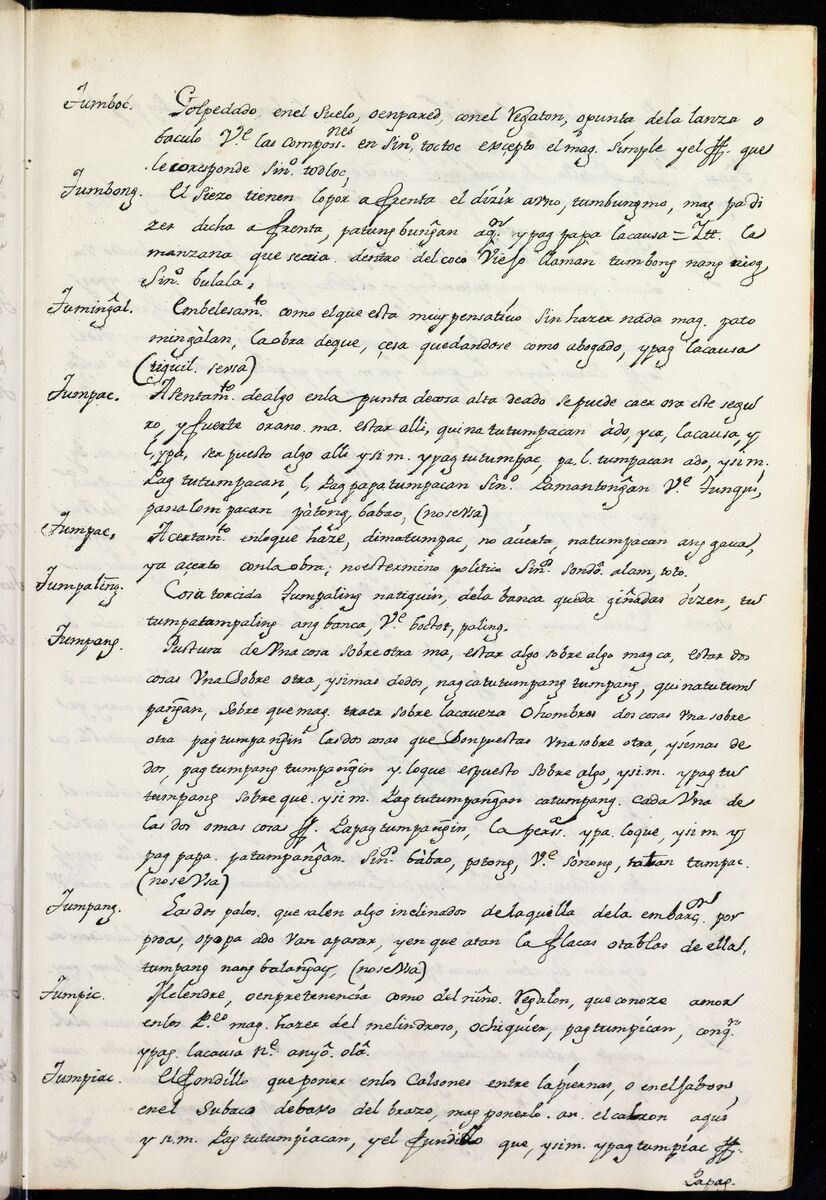 Tumboc. Golpedado, enel suelo, oenpared, conel Vegaton, opunta dela lanza o
baculo Vᵉ las composⁿᵉˢ en Sinº, toctoc excepto el mag. simple y el ff. que
le coresponde Sinº. todloc,
Tumbong. El Siezo tienen lo por a frenta el dizir asno, tumbungmo, mag. pa di
zer dicha a frenta, patung bungan aqⁿ ypag papa lacausa = Itt. la
manzana que se cria dentro del coco Viejo llaman tumbong nang niog,
Sinº bulala,
Tumingal. Embelesamᵗº como el que esta muy pensativo sin hazer nada mag. pato
mingàlan, la obra de que, çesa quedandose como abogado, ypag lacausa
(tiguil. sersa)
Tumpac. Asentamᵗº. de algo enla punta decosa alta deado se puede caer ora este segu
ro, y fuerte òrano. ma. estar alli, quinatutumpacan àdo, yca, lacausa, y
l, ypa, ser puesto algo alli ysim. ypag tutumpac, pa, l. tumpacan ado, ysim.
Pag tutumpacan, l, Pag papatumpacan Sinº. Pamantongan Vᵉ Tungtis,
panalompacan pàtong, babao, (noseVsa)
Tumpac, Acertamᵗº enloque haze, dimatumpac, no açierta, natumpacan ang gaua,
ya açerto conla obra; noestermino politico Sinº. sondô. alam, toto.
Tumpaling. Cosa torcida Tumpaling natiquin, dela banca queda giñadas dizen, tu
tumpatampaling ang banca, Vᵉ boctot, paling.
Tumpang. Postura de Vna cosa sobre otra ma, estar algo sobre algo mag ca, estar dos
cosas Vna sobre otra, ysimas dedos, nagcatutumpang tumpang, quinatutum
pangan, sobre que mag. traer sobre lacaueza o hombros dos cosas Vna sobre
otra pagtumpangin las dos cosas que son puestas Vna sobre otra, ysimas de
dos, pagtumpang tumpangin y. loque espuesto sobre algo, ysi.m. ypag tu
tumpang sobre que. ysim. Pag tutumpangan catumpang. cada Vna de
las dos omas cosas ff. Papag tumpangin, la persª. ypa. loque, ysim. y
pag papa. patumpangan. Sinº. bàbao, potong, Vᵉ sonong, tumpac.
(noseVsa)
Tumpang. Las dos palos. que salen algo inclinados de la quilla dela embarçºⁿ por
proa, opopa ado van aparar, yen que atan la flacas otablas de ella,
tumpang nang balangay, (noseVsa)
Tumpic. Melendre, oenpretenencia como del niño. Vegalon, que conoze amor
enlos P.ᵉˢ mag. hazer del melindroso, ochiquier, pagtumpican, conqⁿ.
ypag. lacausa nᵉ. anyô. olâ.
Tumpiac. El fondillo que poner enlos Calsones entre la piernas, o enel sabon,
enel Subaco debaxo del brazo, mag. ponerlo. an. el calzon aqui
y s.m. Pag tutumpiacan, yel fundillo que, ysim. ypag tumpiac ff.
Papag.